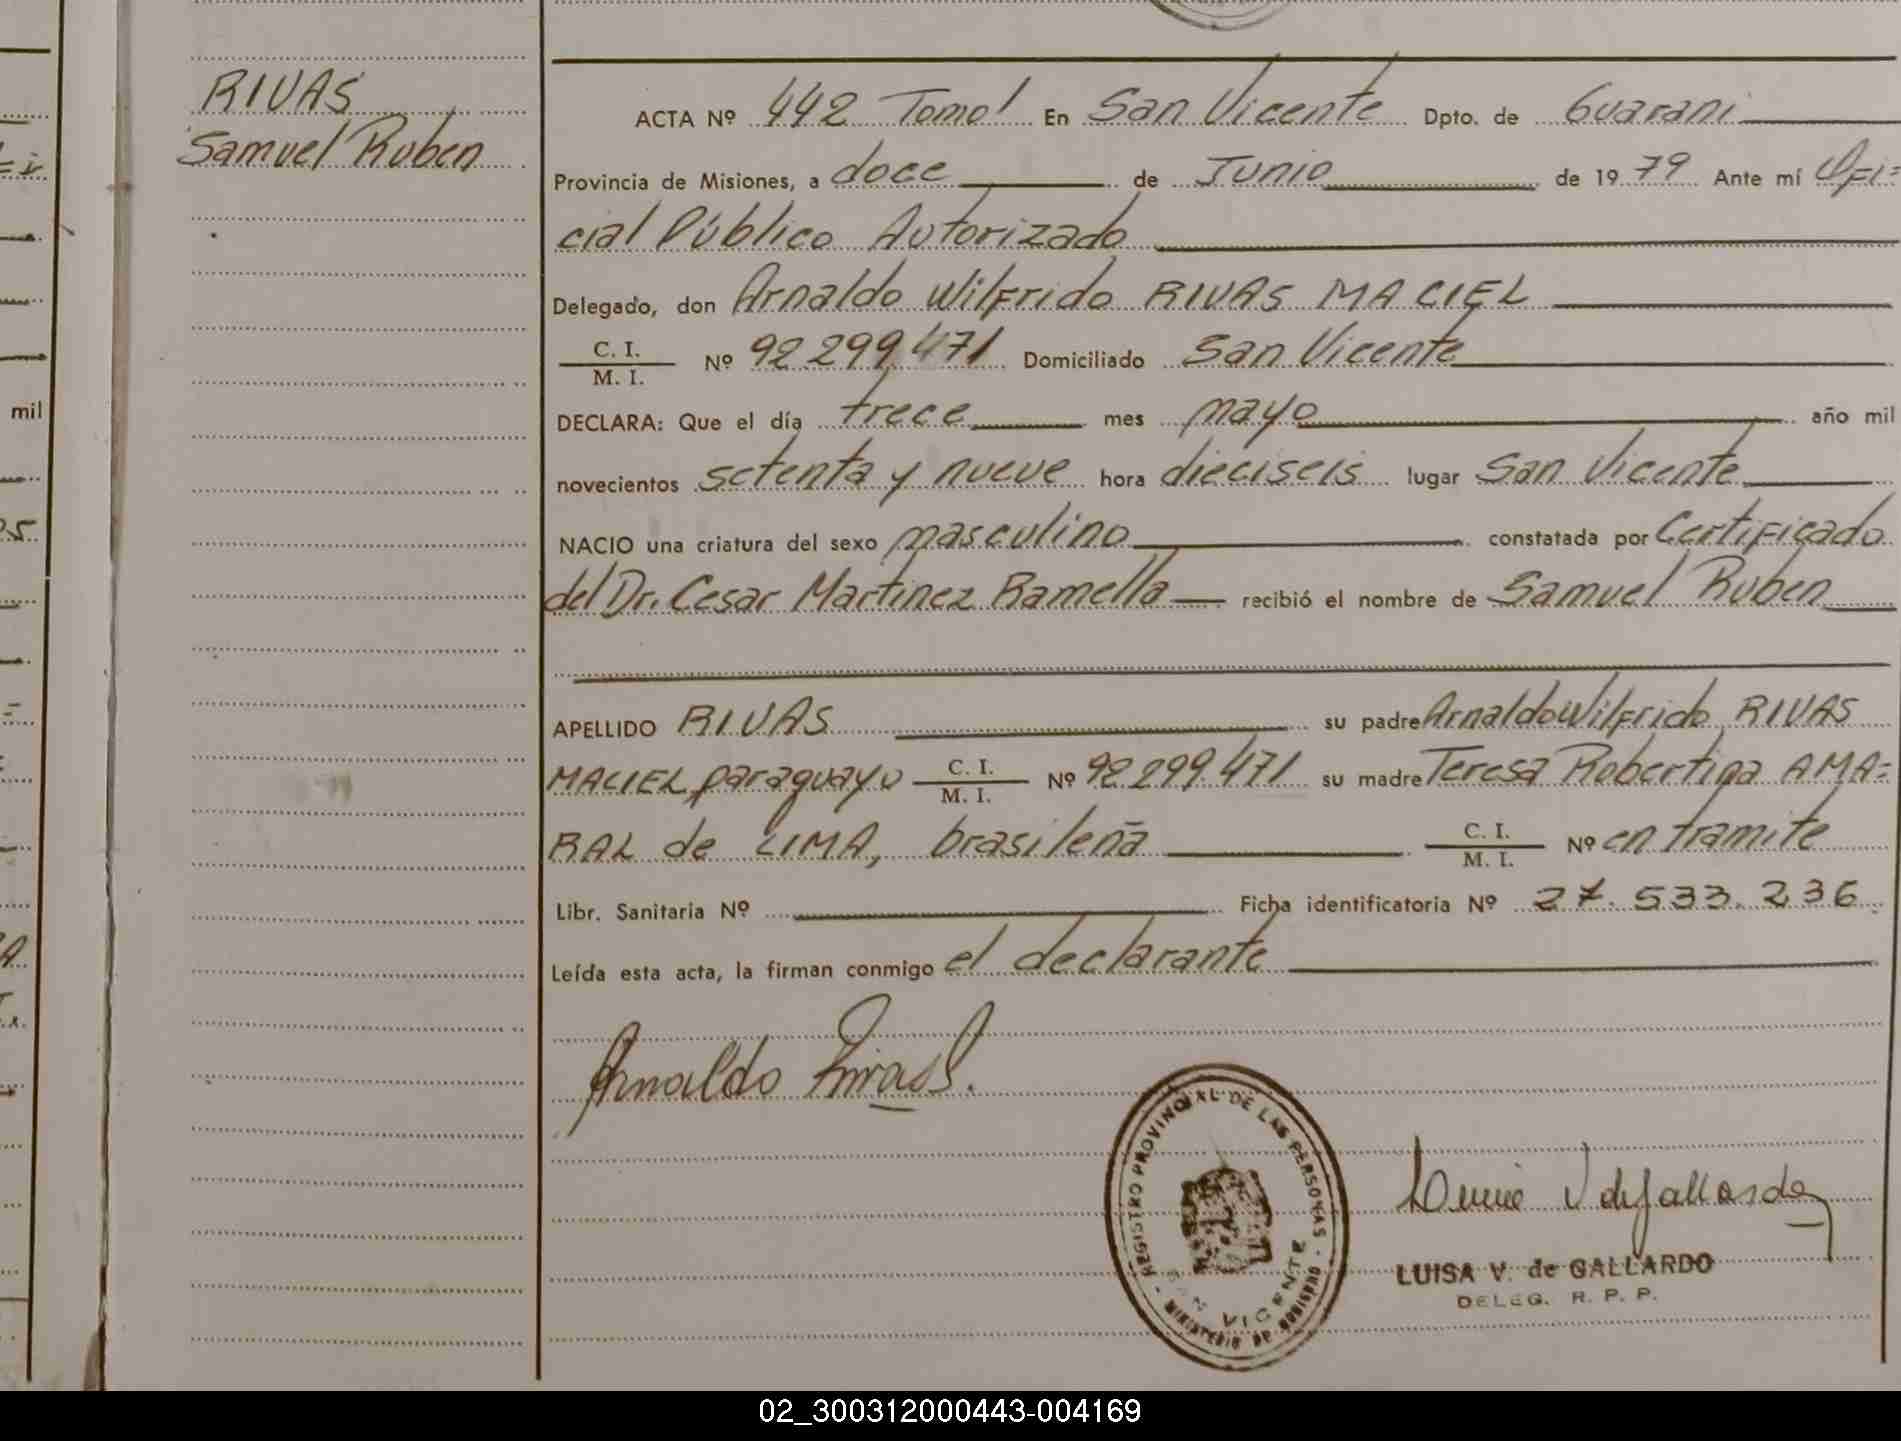 RIVAS
Samuel Ruben
ACTA Nº 442 Tomo I En San Vicente Dpto. de Guarani
Provincia de Misiones, a doce de Junio de 1979 Ante mí Ofi=
cial Público Autorizado
Delegado, don Arnaldo Wilfrido RIVAS MACIEL
C. I.
M. I. Nº 92.299.471 Domiciliado San Vicente
DECLARA: Que el día trece mes mayo año mil
novecientos setenta y nueve hora dieciseis lugar San Vicente
NACIO una criatura del sexo masculino constatada por Certificado
del Dr. Cesar Martinez Ramella recibió el nombre de Samuel Ruben
APELLIDO RIVAS su padre Arnaldo Wilfrido RIVAS
MACIEL, paraguayo C. I. M. I. Nº 92.299.471 su madre Teresa Robertina AMA=
RAL de LIMA, brasileña C. I. M. I. Nº en tramite
Libr. Sanitaria Nº Ficha identificatoria Nº 27.533.236
Leída esta acta, la firman conmigo el declarante
Arnaldo Rivas
REGISTRO PROVINCIAL DE LAS PERSONAS
SAN VICENTE
MINISTERIO DE GOBIERNO
LUISA V. de GALLARDO
DELEG. R. P. P.
mil
02_300312000443-004169